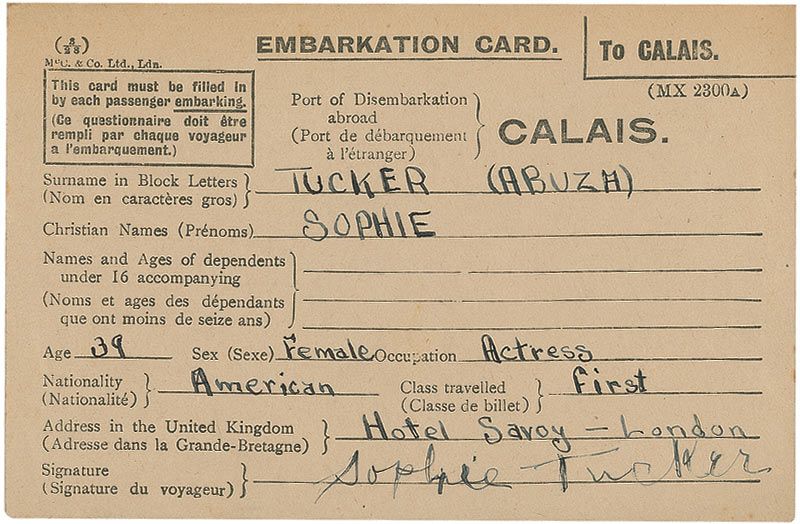 (8/28)
McC. & Co. Ltd., Ldn.
EMBARKATION CARD.
To CALAIS.
(MX 2300A)
This card must be filled in
by each passenger embarking.
(Ce questionnaire doit être
rempli par chaque voyageur
a l'embarquement.)
Port of Disembarkation
abroad
(Port de débarquement
à l'étranger)
CALAIS.
Surname in Block Letters
(Nom en caractères gros)
TUCKER (ABUZA)
Christian Names (Prénoms) SOPHIE
Names and Ages of dependents
under 16 accompanying
(Noms et ages des dépendants
que ont moins de seize ans)
Age 39 Sex (Sexe) Female Occupation Actress
Nationality
(Nationalité)
American
Class travelled
(Classe de billet)
First
Address in the United Kingdom
(Adresse dans la Grande-Bretagne)
Hotel Savoy - London
Signature
(Signature du voyageur)
Sophie Tucker